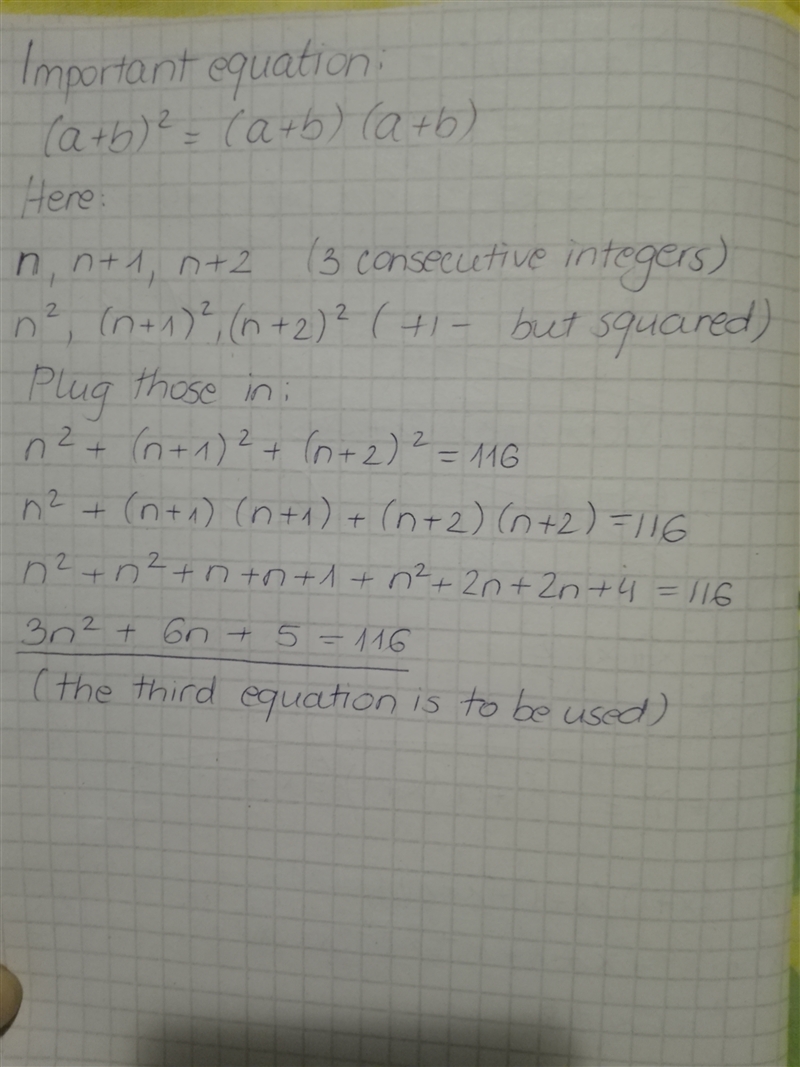 Important equation:
(a+b)² = (a+b) (a+b)
Here:
n, n+1, n+2 (3 consecutive integers)
n², (n+1)², (n+2)² ( -11- but squared)
Plug those in:
n² + (n+1)² + (n+2)² = 116
n² + (n+1) (n+1) + (n+2) (n+2) = 116
n² + n² + n + n + 1 + n² + 2n + 2n + 4 = 116
3n² + 6n + 5 = 116
(the third equation is to be used)